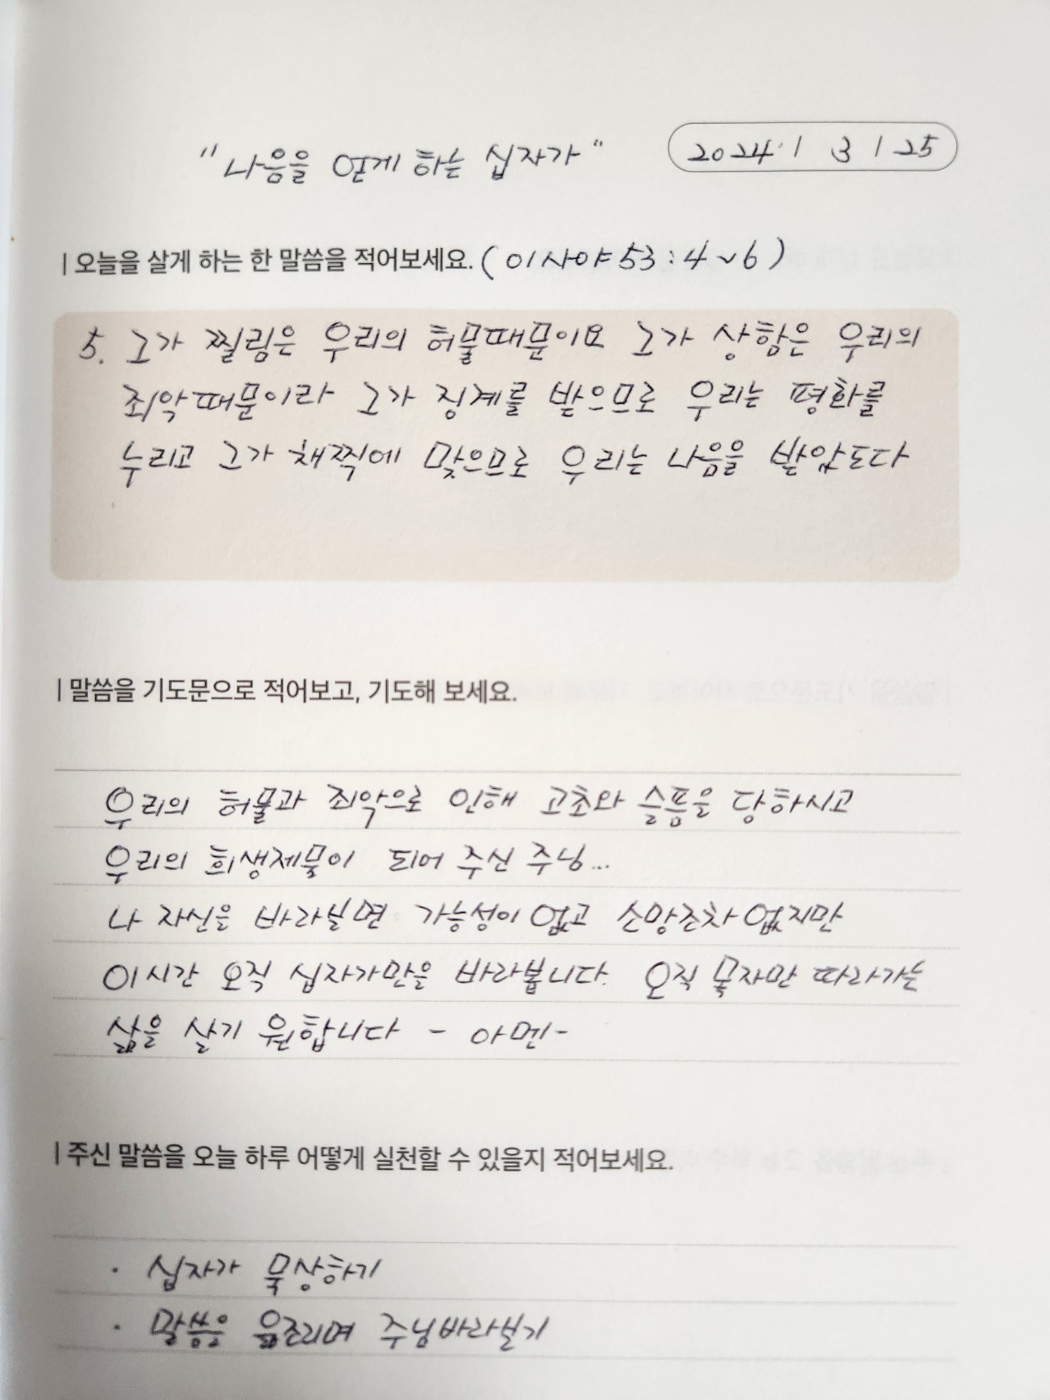 "나음을 얻게 하는 십자가"
2024 | 3 | 25
| 오늘을 살게 하는 한 말씀을 적어보세요. (이사야 53:4~6)
5. 그가 찔림은 우리의 허물때문이요 그가 상함은 우리의
죄악때문이라 그가 징계를 받으므로 우리는 평화를
누리고 그가 채찍에 맞으므로 우리는 나음을 받았도다
| 말씀을 기도문으로 적어보고, 기도해 보세요.
우리의 허물과 죄악으로 인해 고초와 슬픔을 당하시고
우리의 희생제물이 되어 주신 주님...
나 자신을 바라볼면 가능성이 없고 소망조차 없지만
이시간 오직 십자가만을 바라봅니다. 오직 묵자만 따라가는
삶을 살기 원합니다 - 아멘-
| 주신 말씀을 오늘 하루 어떻게 실천할 수 있을지 적어보세요.
· 십자가 묵상하기
· 말씀을 읊조리며 주님바라보기